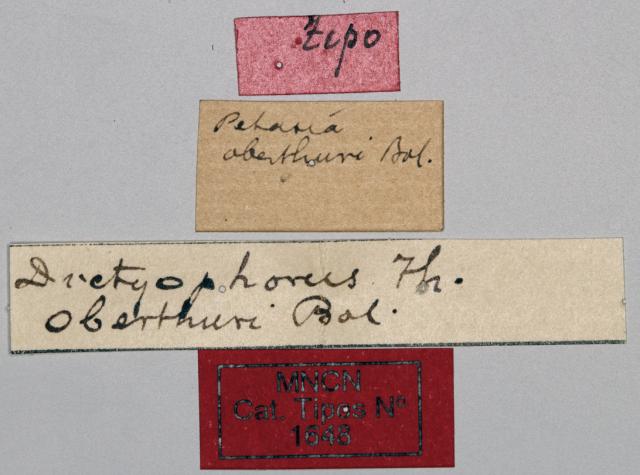 Tipo
Petasia
oberthuri Bol.
Dictyophorus Th.
Oberthuri Bol.
MNCN
Cat. Tipos Nº
1648